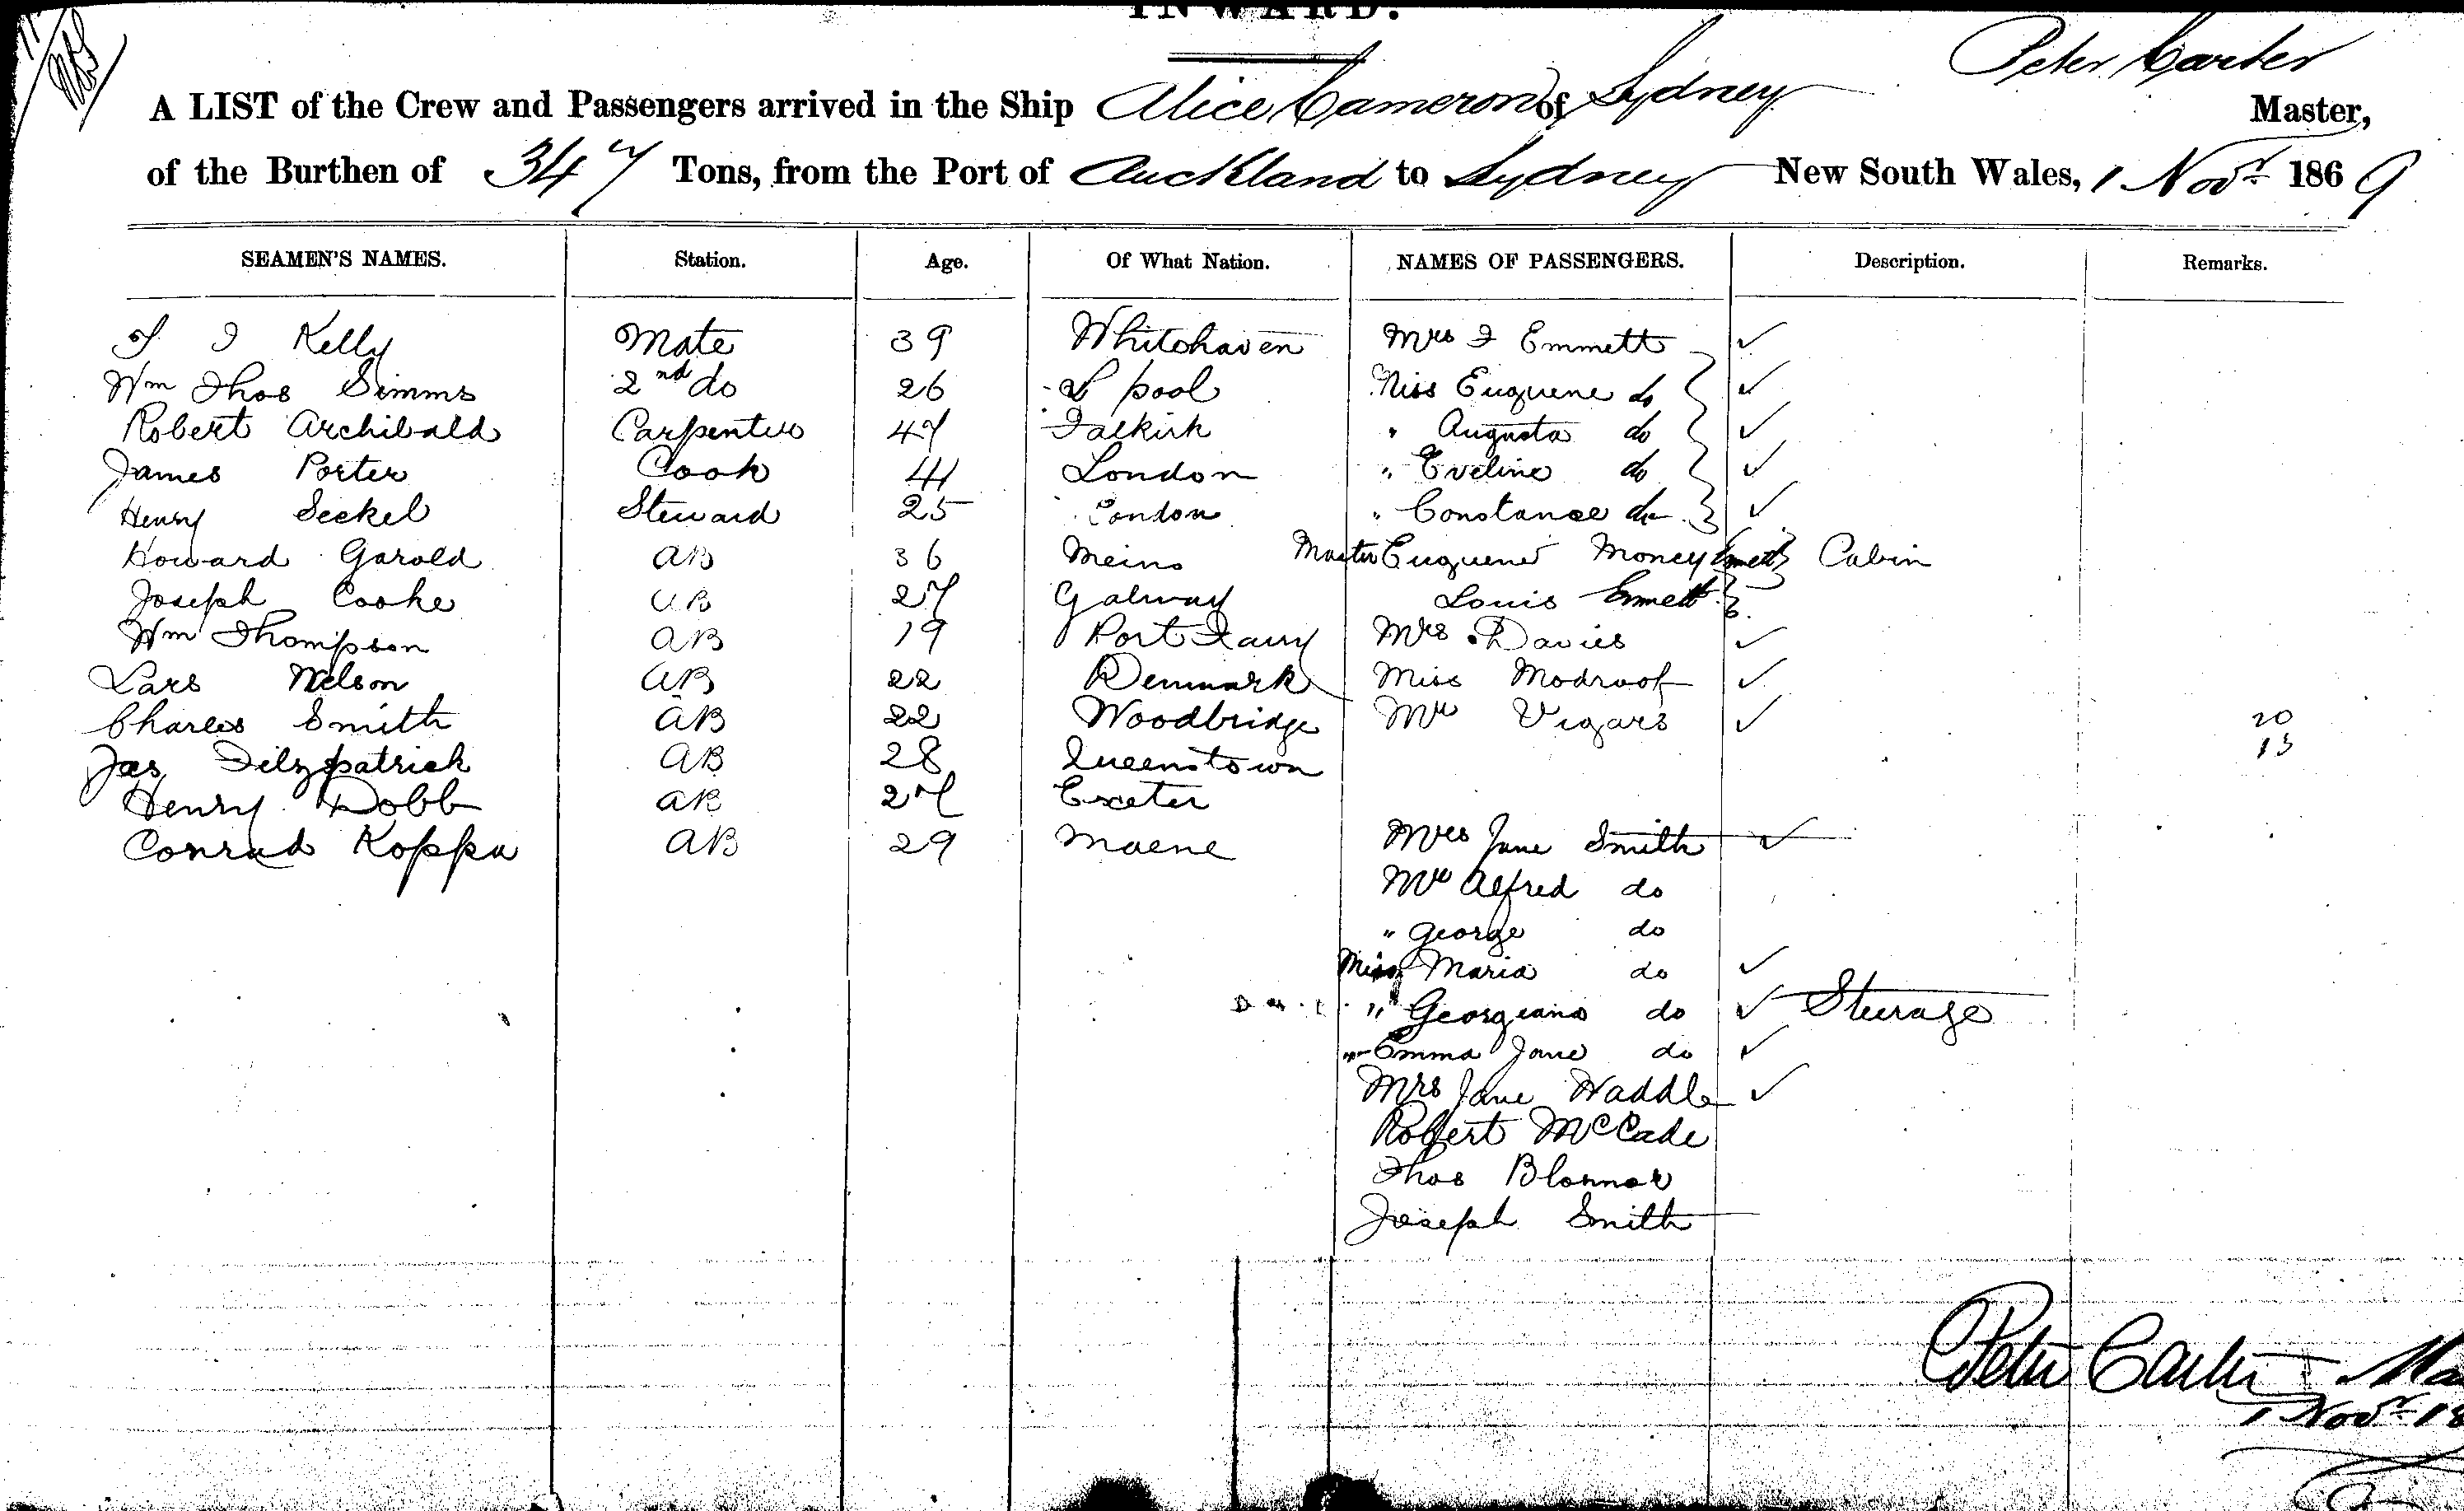 INWARD.
Peter Carter
A LIST of the Crew and Passengers arrived in the Ship Alice Cameron of Sydney Master,
of the Burthen of 347 Tons, from the Port of Auckland to Sydney New South Wales, 1 Novr 1869
SEAMEN'S NAMES. Station. Age. Of What Nation. NAMES OF PASSENGERS. Description. Remarks.
Kelly Mate 39 Whitehaven Mrs Emmett ✓
Wm Thos Simms 2nd do 26 L pool Miss Euquene do ✓
Robert Archibald Carpenter 47 Falkirk " Augusta do ✓
James Porter Cook 41 London " Eveline do ✓
Henry Seckel Steward 25 London " Constance do ✓
Howard Garold AB 36 Meino Master Euquene Money Emmett Cabin
Joseph Cooke AB 27 Galway Louis Emmett
Wm Thompson AB 19 Port Fairy Mrs Davies ✓
Lars Nelson AB 22 Denmark Miss Modraof ✓
Charles Smith AB 22 Woodbridge Mr Vigars ✓ 20
Jas Fitzpatrick AB 28 Queenstown 13
Henry Dobb AB 27 Exeter
Conrad Koppa AB 29 Maene Mrs Jane Smith ✓
Mr Alfred do
" George do
Miss Maria do ✓
" Georgiana do ✓ Steerage
" Emma Jane do ✓
Mrs Jane Waddle ✓
Robert McCade
Thos
Joseph Smith
Peter Carter Ma
1 Novr 18